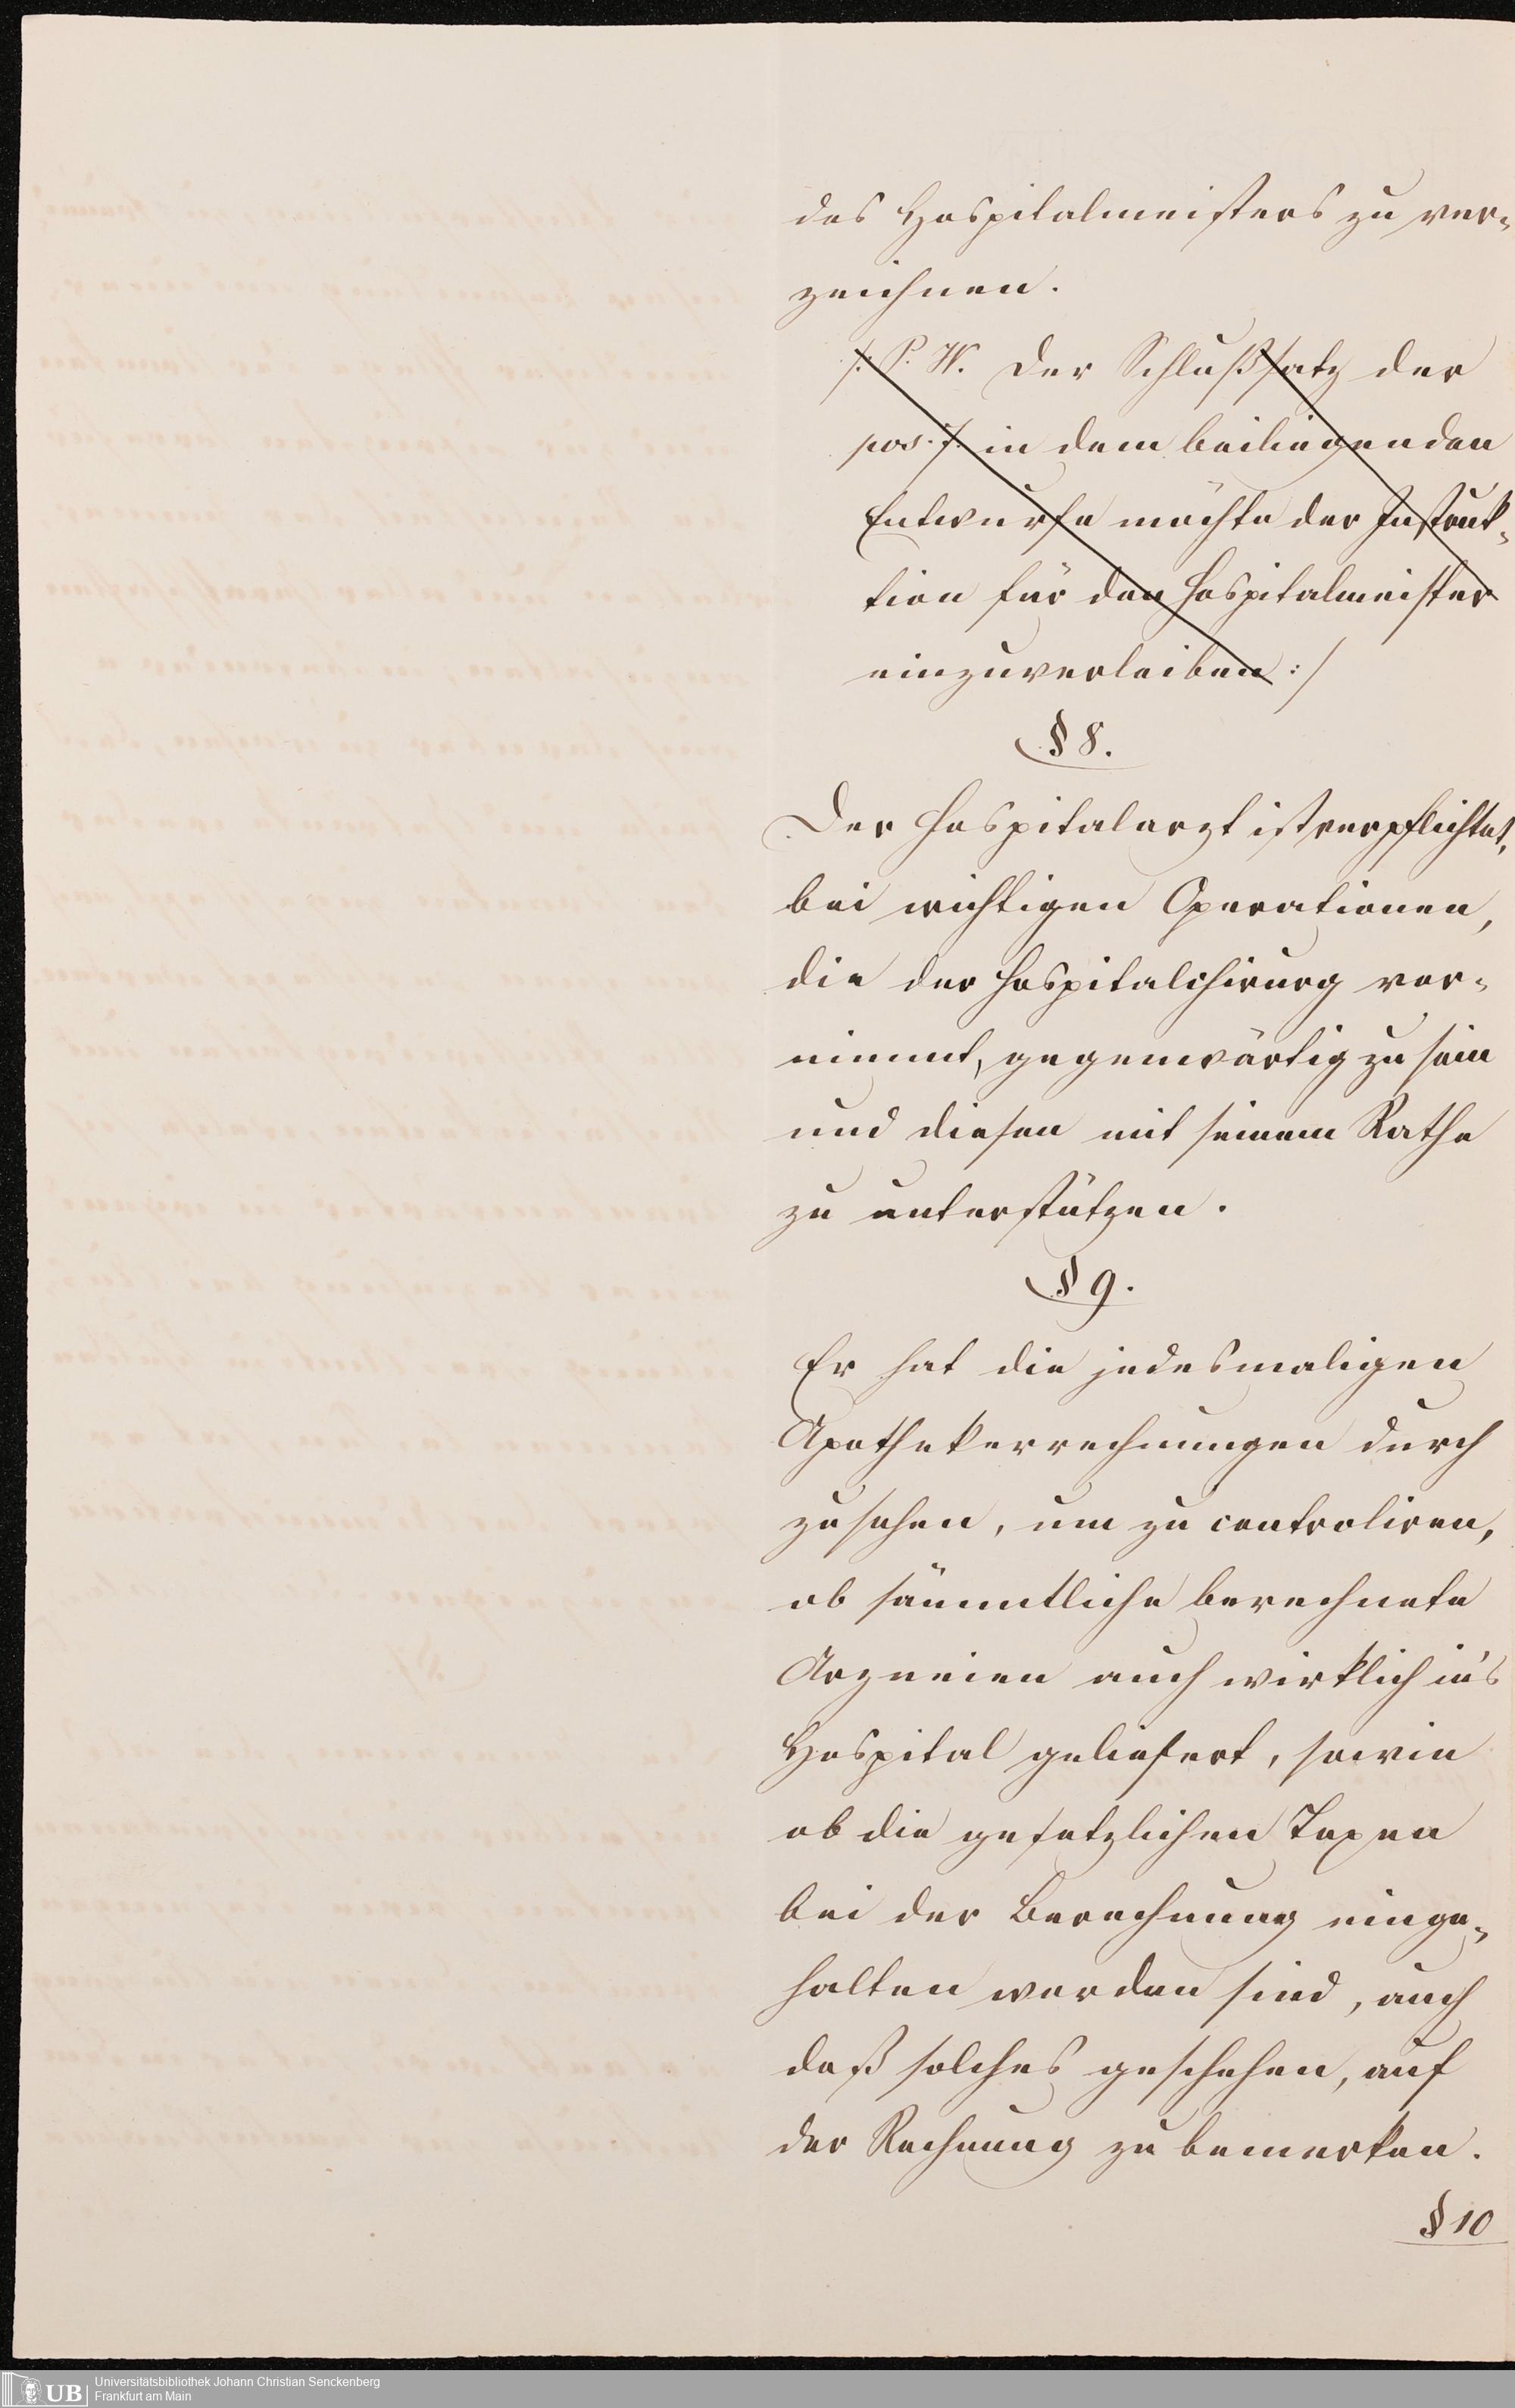 des Hospitalmeisters zu ver-
zeichnen.
/: P. N. Der Schlußsatz der
pos. 7. in dem beiliegenden
Entwurfe möchte der Instruk-
tion für den Hospitalmeister
einzuverleiben :/
§ 8.
Der Hospitalarzt ist verpflichtet,
bei wichtigen Operationen,
die der Hospitalchirurg vor-
nimmt, gegenwärtig zu sein
und diesen mit seinem Rathe
zu unterstützen.
§ 9.
Er hat die jedesmaligen
Apothekerrechnungen durch
zusehen, um zu controliren,
ob sämmtliche berechnete
Arzneien auch wirklich in's
Hospital geliefert, sowie
ob die gesetzlichen Taxen
bei der Berechnung einge-
halten worden sind, auch
daß solches geschehen, auf
der Rechnung zu bemerken.
§ 10
UB Universitätsbibliothek Johann Christian Senckenberg
Frankfurt am Main